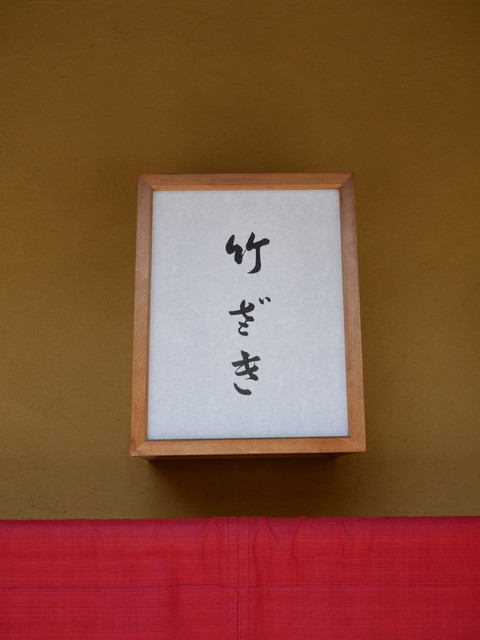 竹ざき